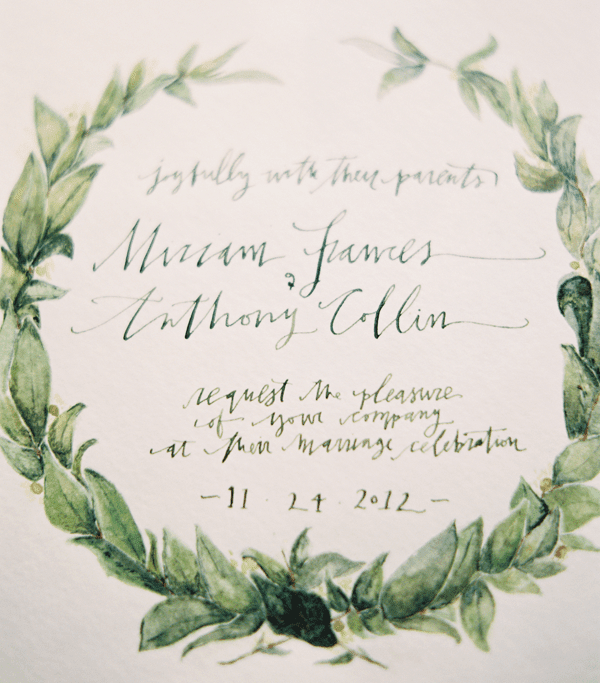 joyfully with their parents
Miriam Frances
&
Anthony Collin
request the pleasure
of your company
at their marriage celebration
- 11 · 24 · 2012 -